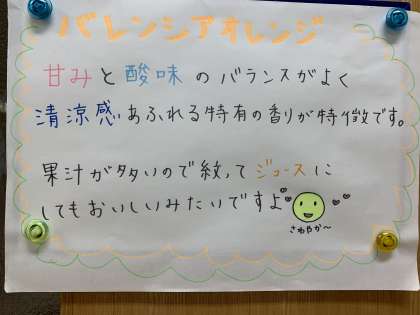 バレンシアオレンジ
甘みと酸味のバランスがよく
清涼感あふれる特有の香りが特徴です。
果汁が多いので絞ってジュースに
してもおいしいみたいですよ
さわやか〜